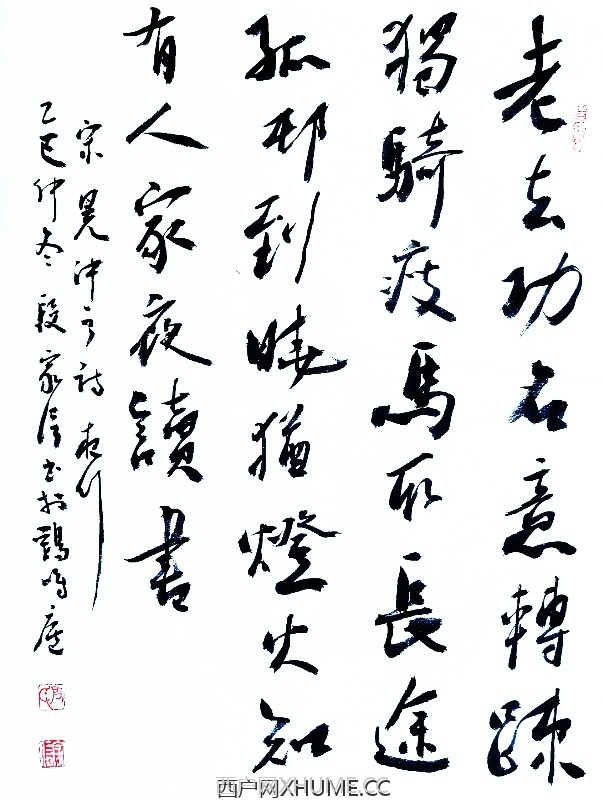 老去功名意轉疎
獨騎瘦馬取長途
孤邨到曉猶燈火知
有人家夜讀書
宋晁沖之詩夜行
乙巳仲冬段家书於鳴廬
西户网XHUME.CC